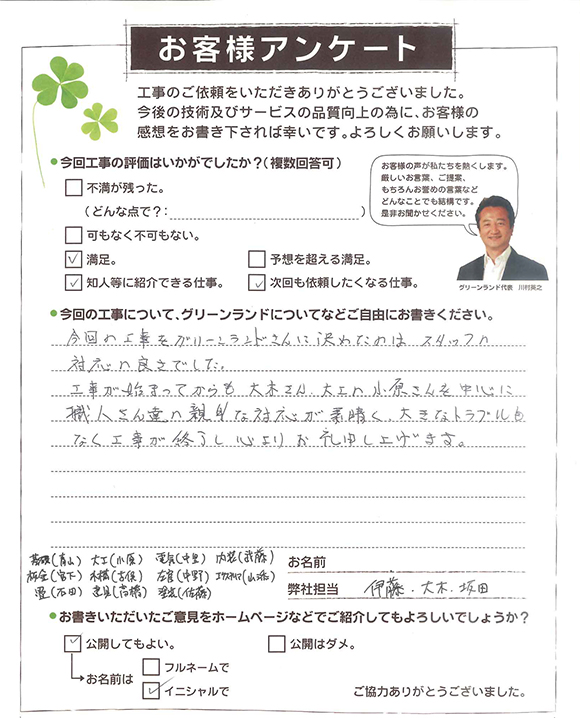 お客様アンケート
工事のご依頼をいただきありがとうございました。
今後の技術及びサービスの品質向上の為に、お客様の
感想をお書き下されば幸いです。よろしくお願いします。
●今回工事の評価はいかがでしたか?(複数回答可)
不満が残った。
(どんな点で?: )
可もなく不可もない。
満足。 予想を超える満足。
知人等に紹介できる仕事。 次回も依頼したくなる仕事。
お客様の声が私たちを熱くします。
厳しいお言葉、ご提案、
もちろんお誉めの言葉など
どんなことでも結構です。
是非お聞かせください。
グリーンランド代表 川村英之
●今回の工事について、グリーンランドについてなどご自由にお書きください。
今回の工事をグリーンランドさんに決めたのは スタッフの
対応の良さでした。
工事が始まってからも 大木さん、大工の小原さんを中心に
職人さん達の親身な対応が素晴く、大きなトラブルも
なく工事が終了し心よりお礼申し上げます。
基礎(青山) 大工(小原) 電気(中里) 内装(武藤)
板金(宮下) 木橋(古俣) 左官(中野) エクステリア(山添)
畳(石田) 建具(高橋) 塗装(佐藤)
お名前
弊社担当 伊藤・大木・坂田
●お書きいただいたご意見をホームページなどでご紹介してもよろしいでしょうか?
公開してもよい。 公開はダメ。
お名前は フルネームで
イニシャルで
ご協力ありがとうございました。